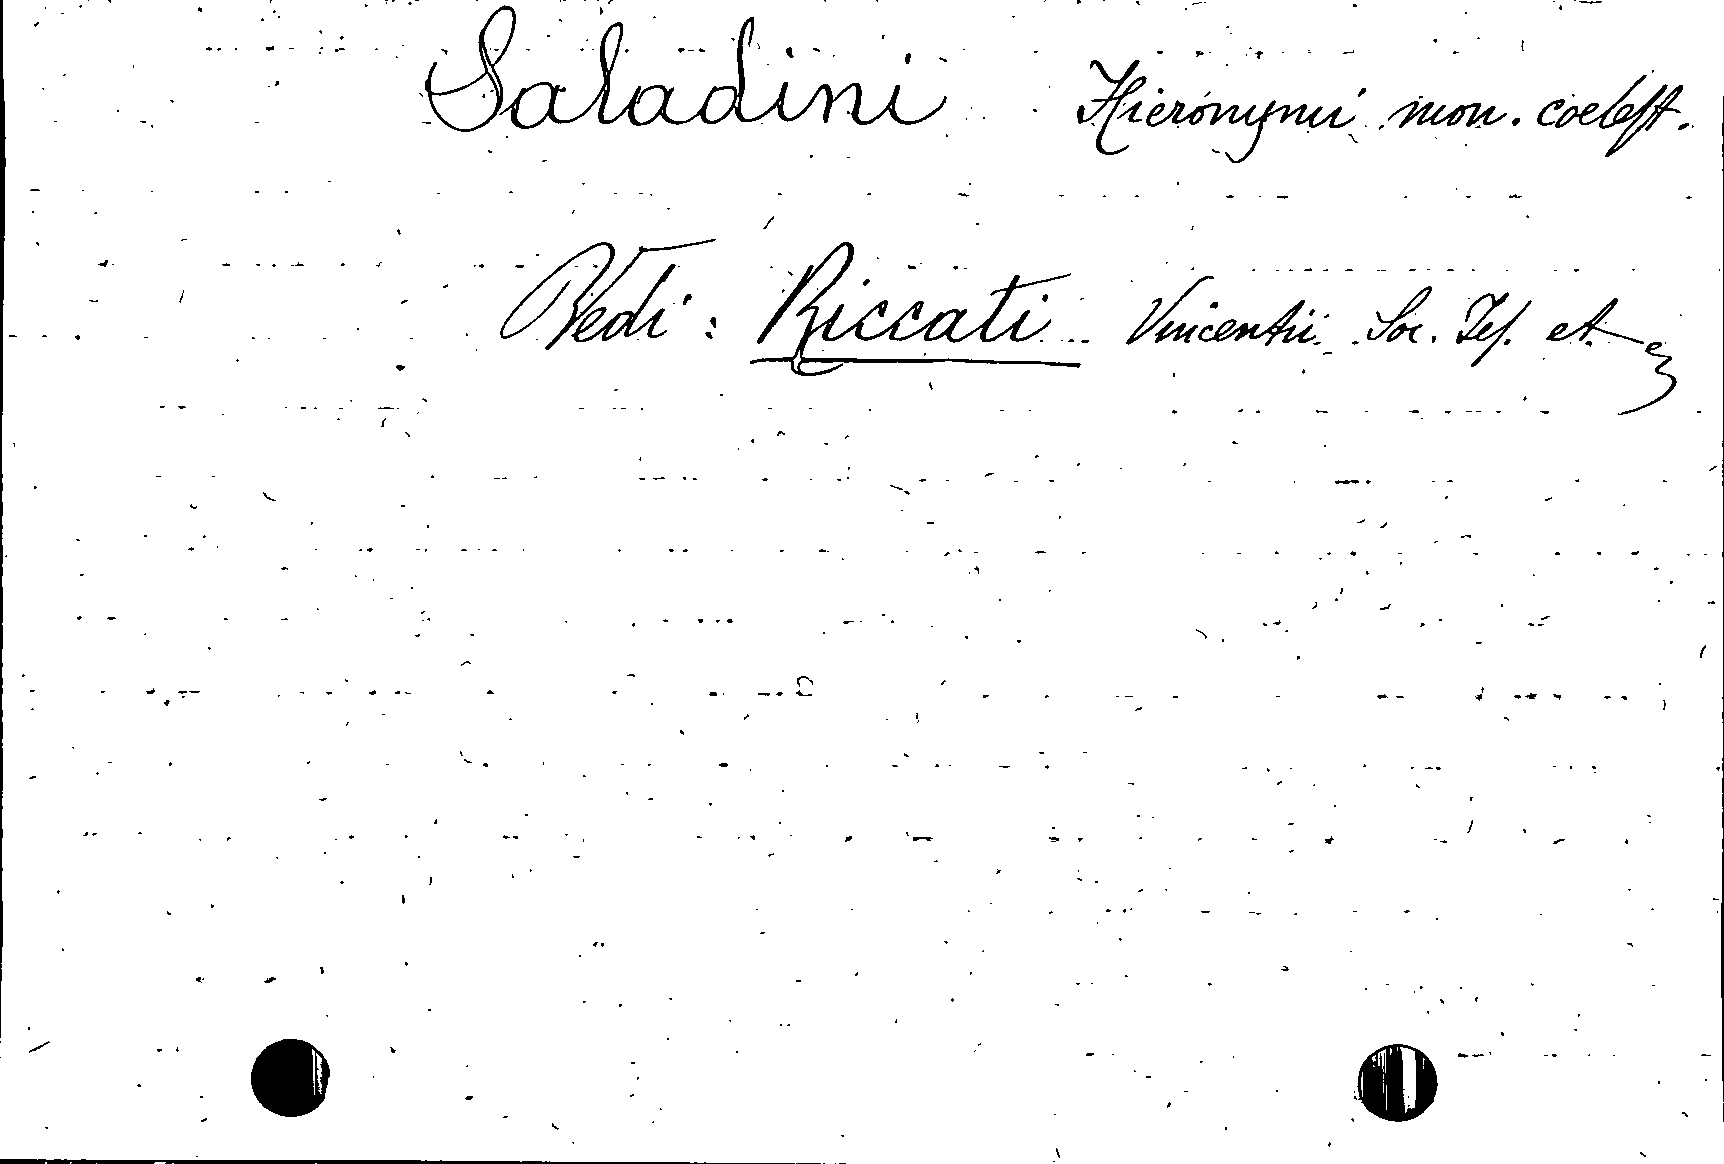 Saladini Hieronymi mon. coelest.
Vedi: Riccati Vincentii Soc. Jes. et